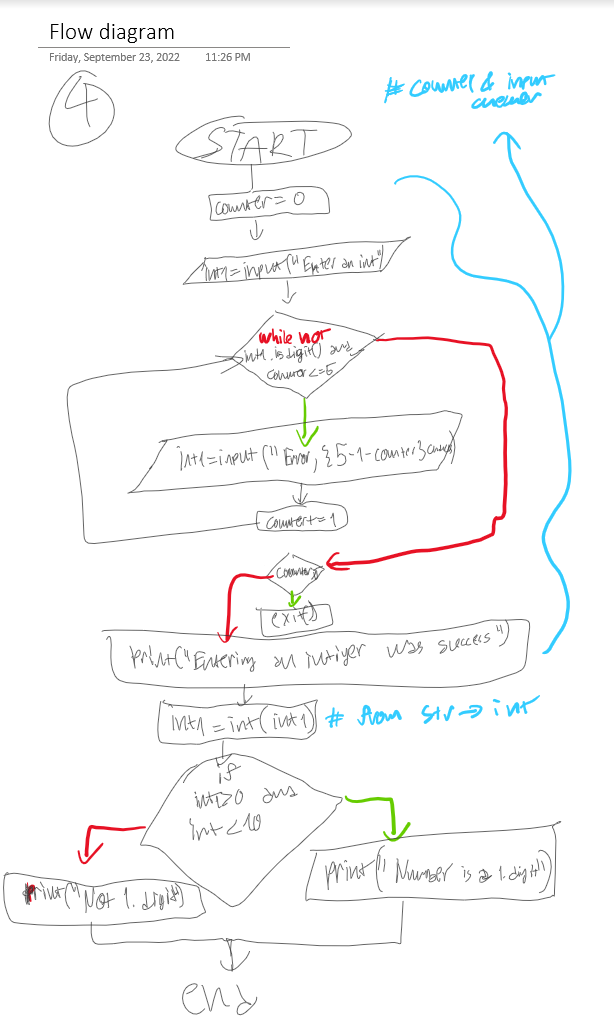 Flow diagram
Friday, September 23, 2022 11:26 PM
4
# counter & input
START
counter = 0
int1 = input("Enter an int")
while not
int1.isdigit() and
counter <= 5
int1 = input("Error, {5-1-counter}
counter += 1
exit()
print("Entering an intiger was success")
int1 = int(int1) # from str → int
if
int1>0 and
int <10
print("Not 1. digit)
print("Number is a 1. digit")
end